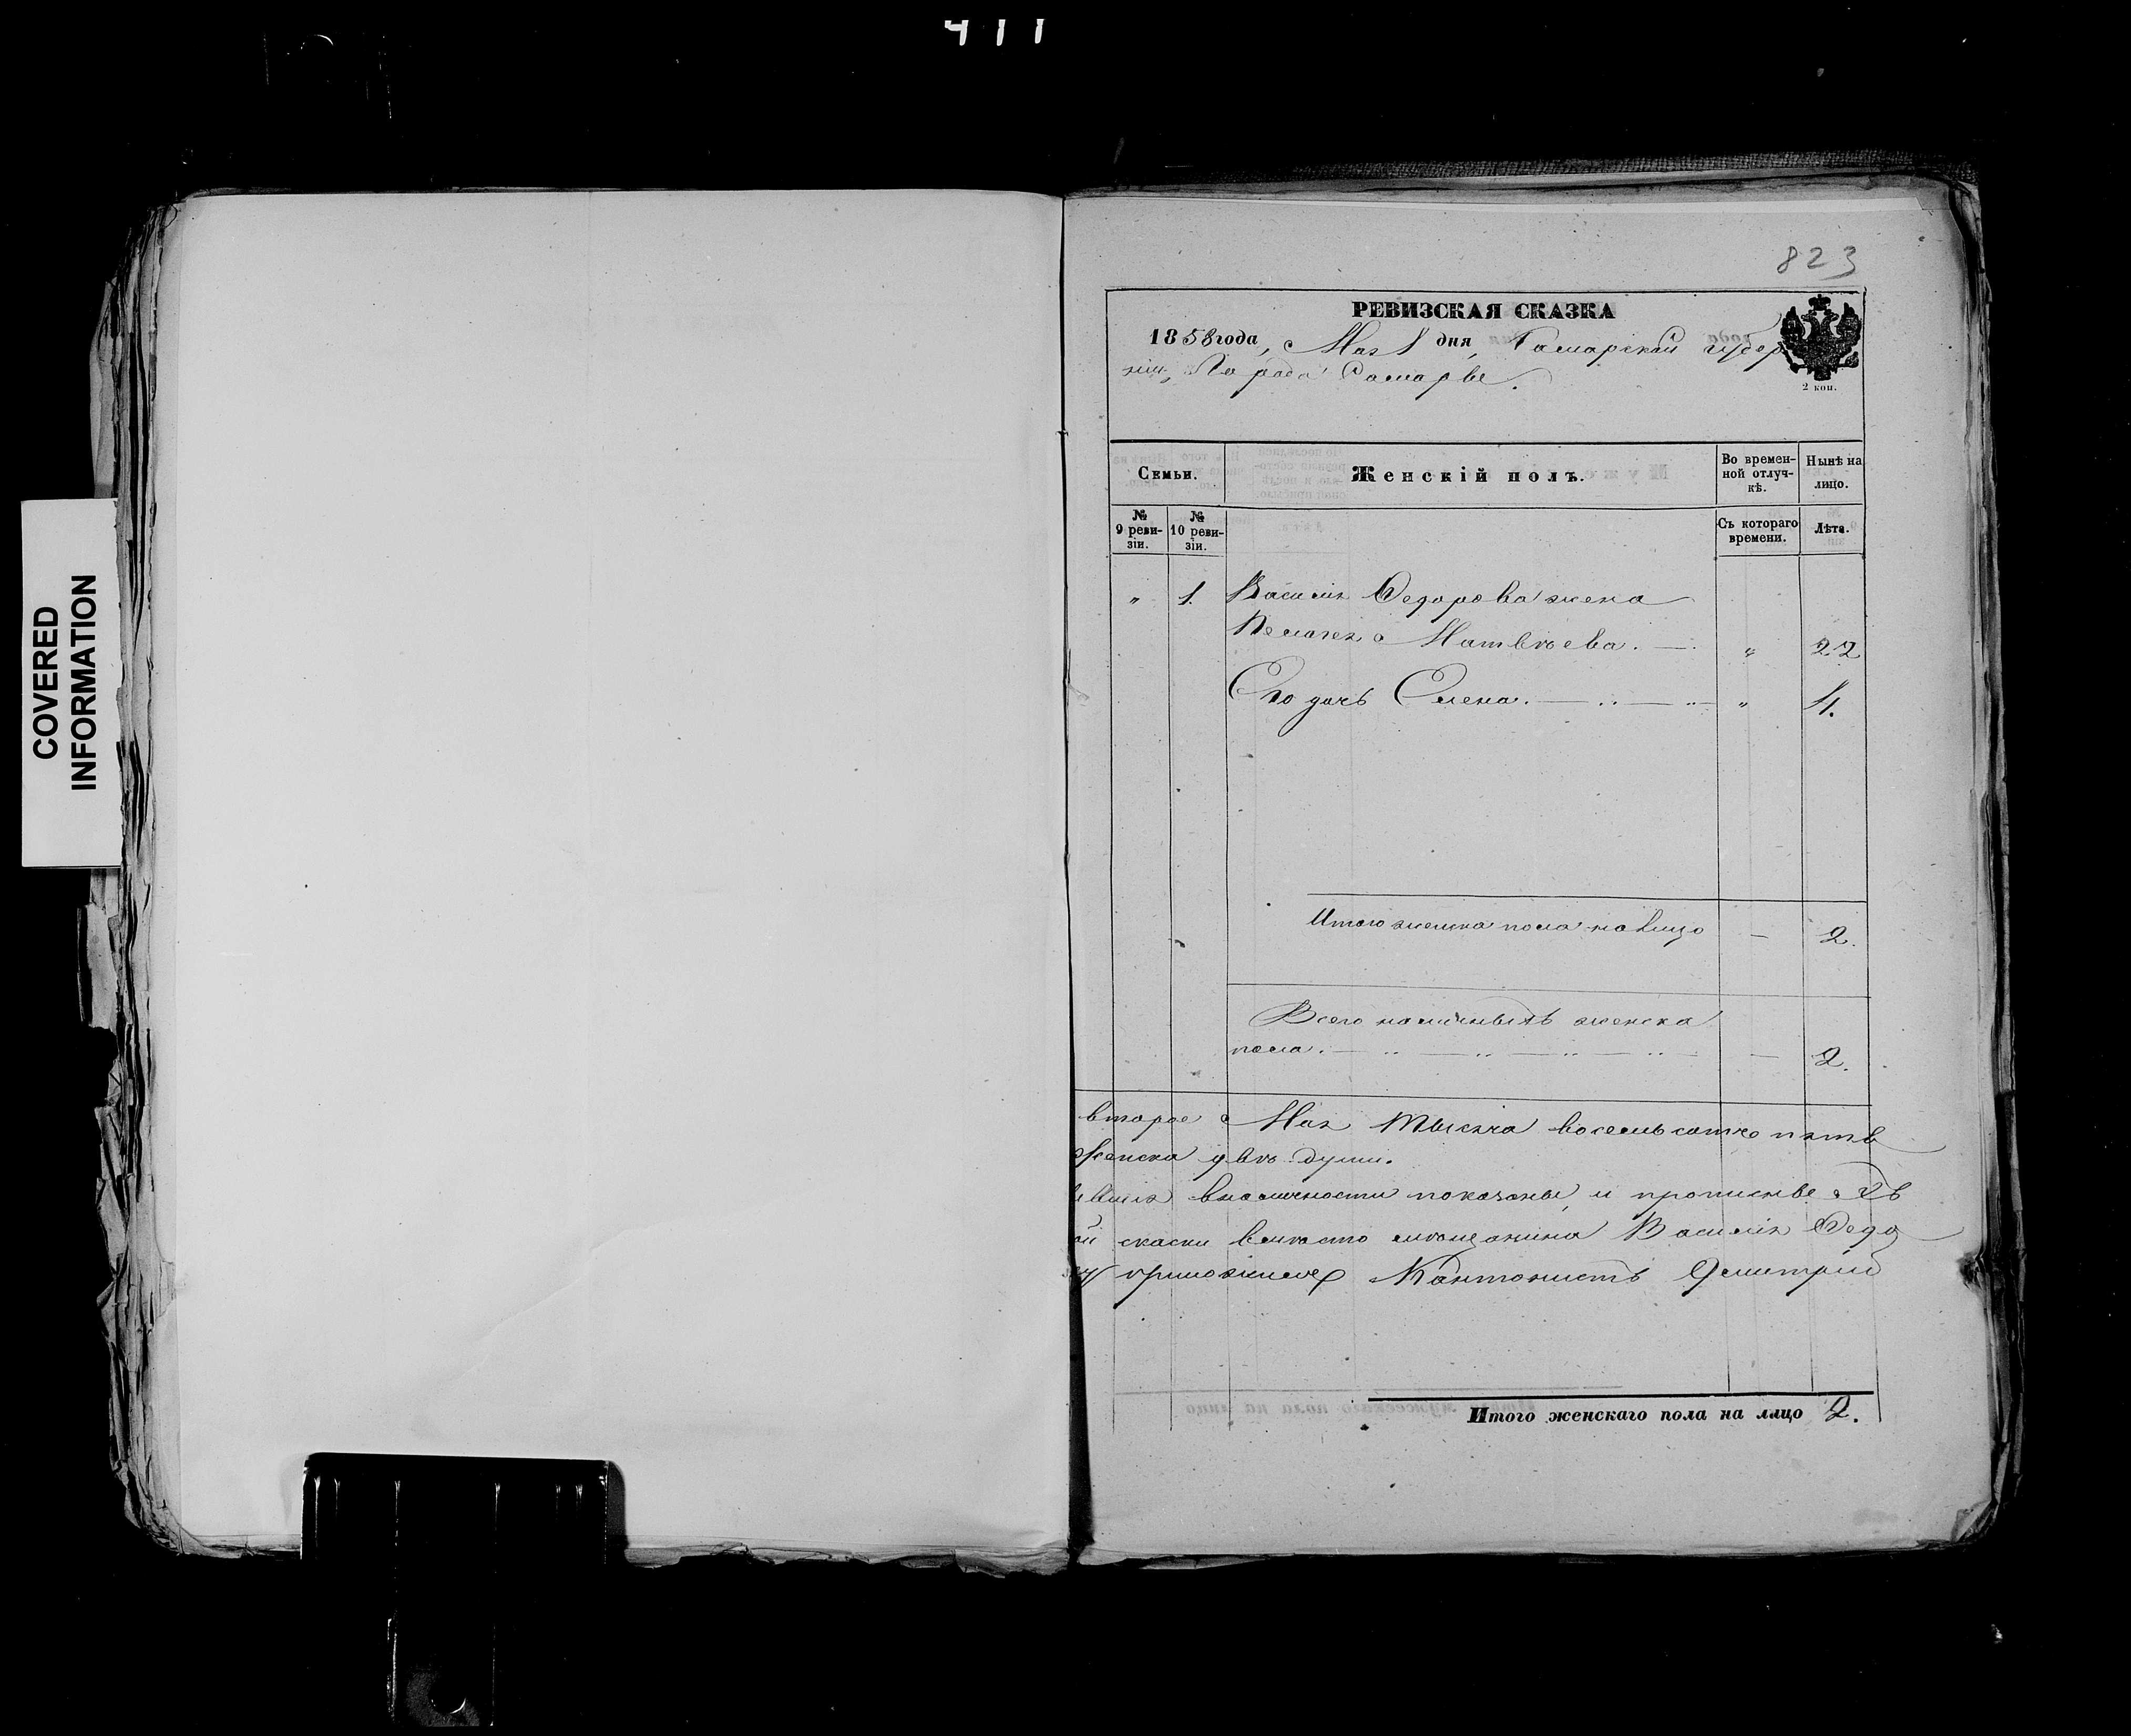 411
COVERED
INFORMATION
823
РЕВИЗСКАЯ СКАЗКА
1858 года, Мая 1 дня, Самарской губер
нiи, Города Самары.
2 коп.
Семьи.
Женскiй полъ.
Во времен-
ной отлуч-
кѣ.
Нынѣ на
лицо.
№
9 реви-
зiи.
№
10 реви-
зiи.
Съ котораго
времени.
Лѣта.
„ 1. Василiя Федорова жена
Матвѣева. — „ 22
Его дочь Елена. — „ — „ — „ 4.
Итого женска пола на лицо — 2.
Всего наличныхъ женска
пола. — „ — „ — „ — „ — 2.
второе Мая тысяча восемьсотъ пять
женска двѣ души.
в наличности показаны, и прописныхъ
скаски вмѣсто мѣщанина Василiя Федо
приложилъ Кантонистъ Дмитрiй
Итого женскаго пола на лицо 2.